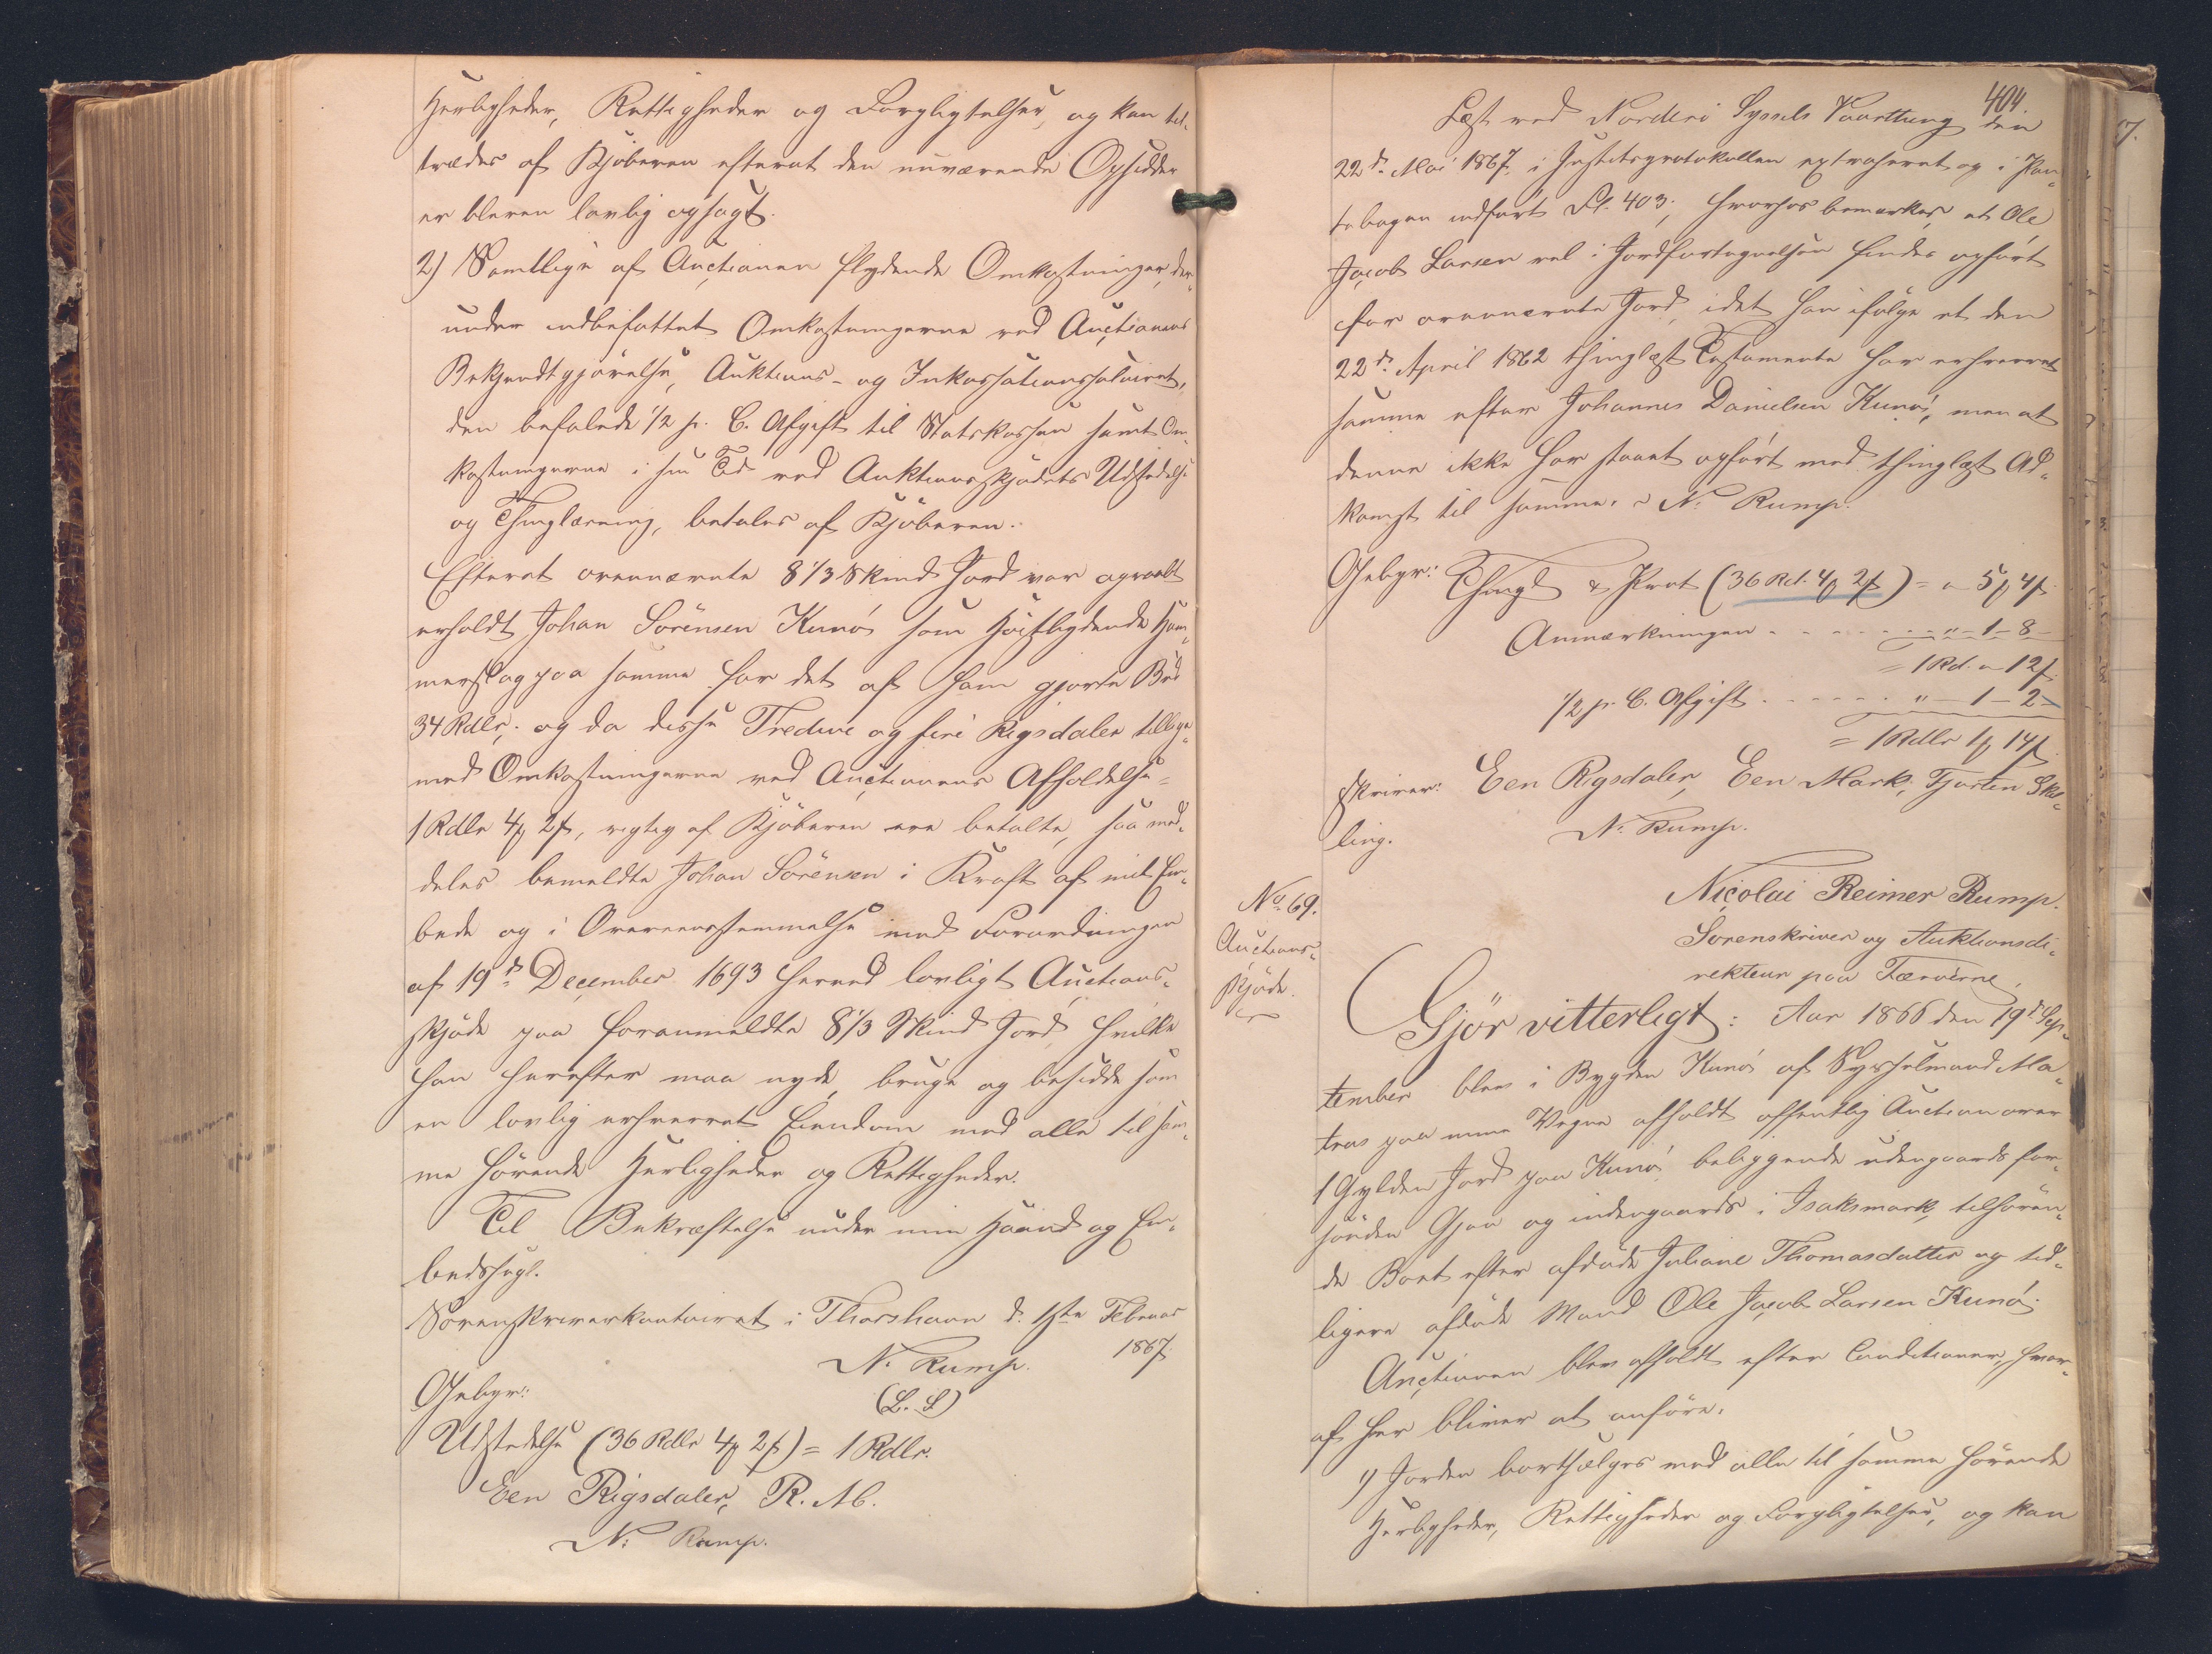 Herligheder, Rettigheder og Forpligtelser, og kan til-
trædes af Kjöberen efterat den nuværende Opsidder
er bleven lovlig opsagt.
2) Samtlige af Auctionen flydende Omkostninger, der-
under indbefattet Omkostningerne ved Auctionens
Bekjendtgjörelse, Auktions- og Inkassationssalairet,
den befalede 1/2 p. C. Afgift til Statskassen samt Om-
kostningerne i sin Tid ved Auktionsskjödets Udstedelse
og Thinglæsning, betales af Kjöberen.
Efterat ovennævnte 8 1/3 Skind Jord var opraabt
erholdt Johan Sörensen Kunö som höistbydende Ham-
merslag paa samme for det af ham gjorte Bud
34 Rdlr; og da disse Tredive og fire Rigsdaler tillige-
med Omkostningerne ved Auctionens Afholdelse =
1 Rdlr 4 ꝶ 2 ß, rigtig af Kjöberen ere betalte, saa med-
deles bemeldte Johan Sörensen i Kraft af mit Em-
bede og i Overeensstemmelse med Forordningen
af 19d. December 1693 herved lovligt Auctions-
skjöde paa foranmeldte 8 1/3 Skind Jord, hvilke
han herefter maa nyde, bruge og besidde som
en lovlig erhvervet Eiendom med alle til sam-
me hörende Herligheder og Rettigheder.
Til Bekræftelse under min Haand og Em-
bedssegl.
Sorenskriverkontoiret i Thorshavn d. 1ste Februar
1867
N. Rump.
(L. S.)
Gebyr:
Udstedelse (36 Rdlr 4 ꝶ 2 ß) = 1 Rdlr.
Een Rigsdaler, R. M.
N. Rump.
404.
Læst ved Norderö Syssels Vaarthing den
22d. Mai 1867, i Justitsprotokollen extraheret og i Pan-
tebogen indfört Fl. 403; hvorhos bemærkes, at Ole
Jacob Larsen vel i Jordfortegnelsen findes opfört
for ovennævnte Jord, idet han ifölge et den
22d. April 1862 thinglæst Testamente har erhvervet
samme efter Johannes Danielsen Kunö, men at
denne ikke har staaet opfört med thinglæst Ad-
komst til samme. N. Rump.
Gebyr: Thingl & Prot (36 Rd. 4 ꝶ 2 ß) = " 5 ꝶ 4 ß
Anmærkningen . . . . . . " - 1 - 8 -
= 1 Rd. " 12 ß
1/2 p. C. Afgift . . . . . . " - 1 - 2 -
= 1 Rdlr 1 ꝶ 14 ß
skriver: Een Rigsdaler, Een Mark, Fjorten Skil-
ling. N. Rump.
No. 69.
Auctions-
skjöde.
Nicolai Reimer Rump.
Sorenskriver og Auktionsdi-
rekteur paa Færöerne,
Gjör vitterligt: Aar 1866 den 19d Sep-
tember blev i Bygden Kunö af Sysselmand Ma-
tras paa mine Vegne afholdt offentlig Auction over
1 Gylden Jord paa Kunö, beliggende udengaards for-
sönden Gjaa og indengaards i Isaksmark, tilhören-
de Boet efter afdöde Juliane Thomasdatter og tid-
ligere afdöde Mand Ole Jacob Larsen Kunö.
Auctionen blev afholdt efter Conditioner, hvor-
af her bliver at anföre:
1) Jorden bortsælges med alle til samme hörende
Herligheder, Rettigheder og Forpligtelser, og kan